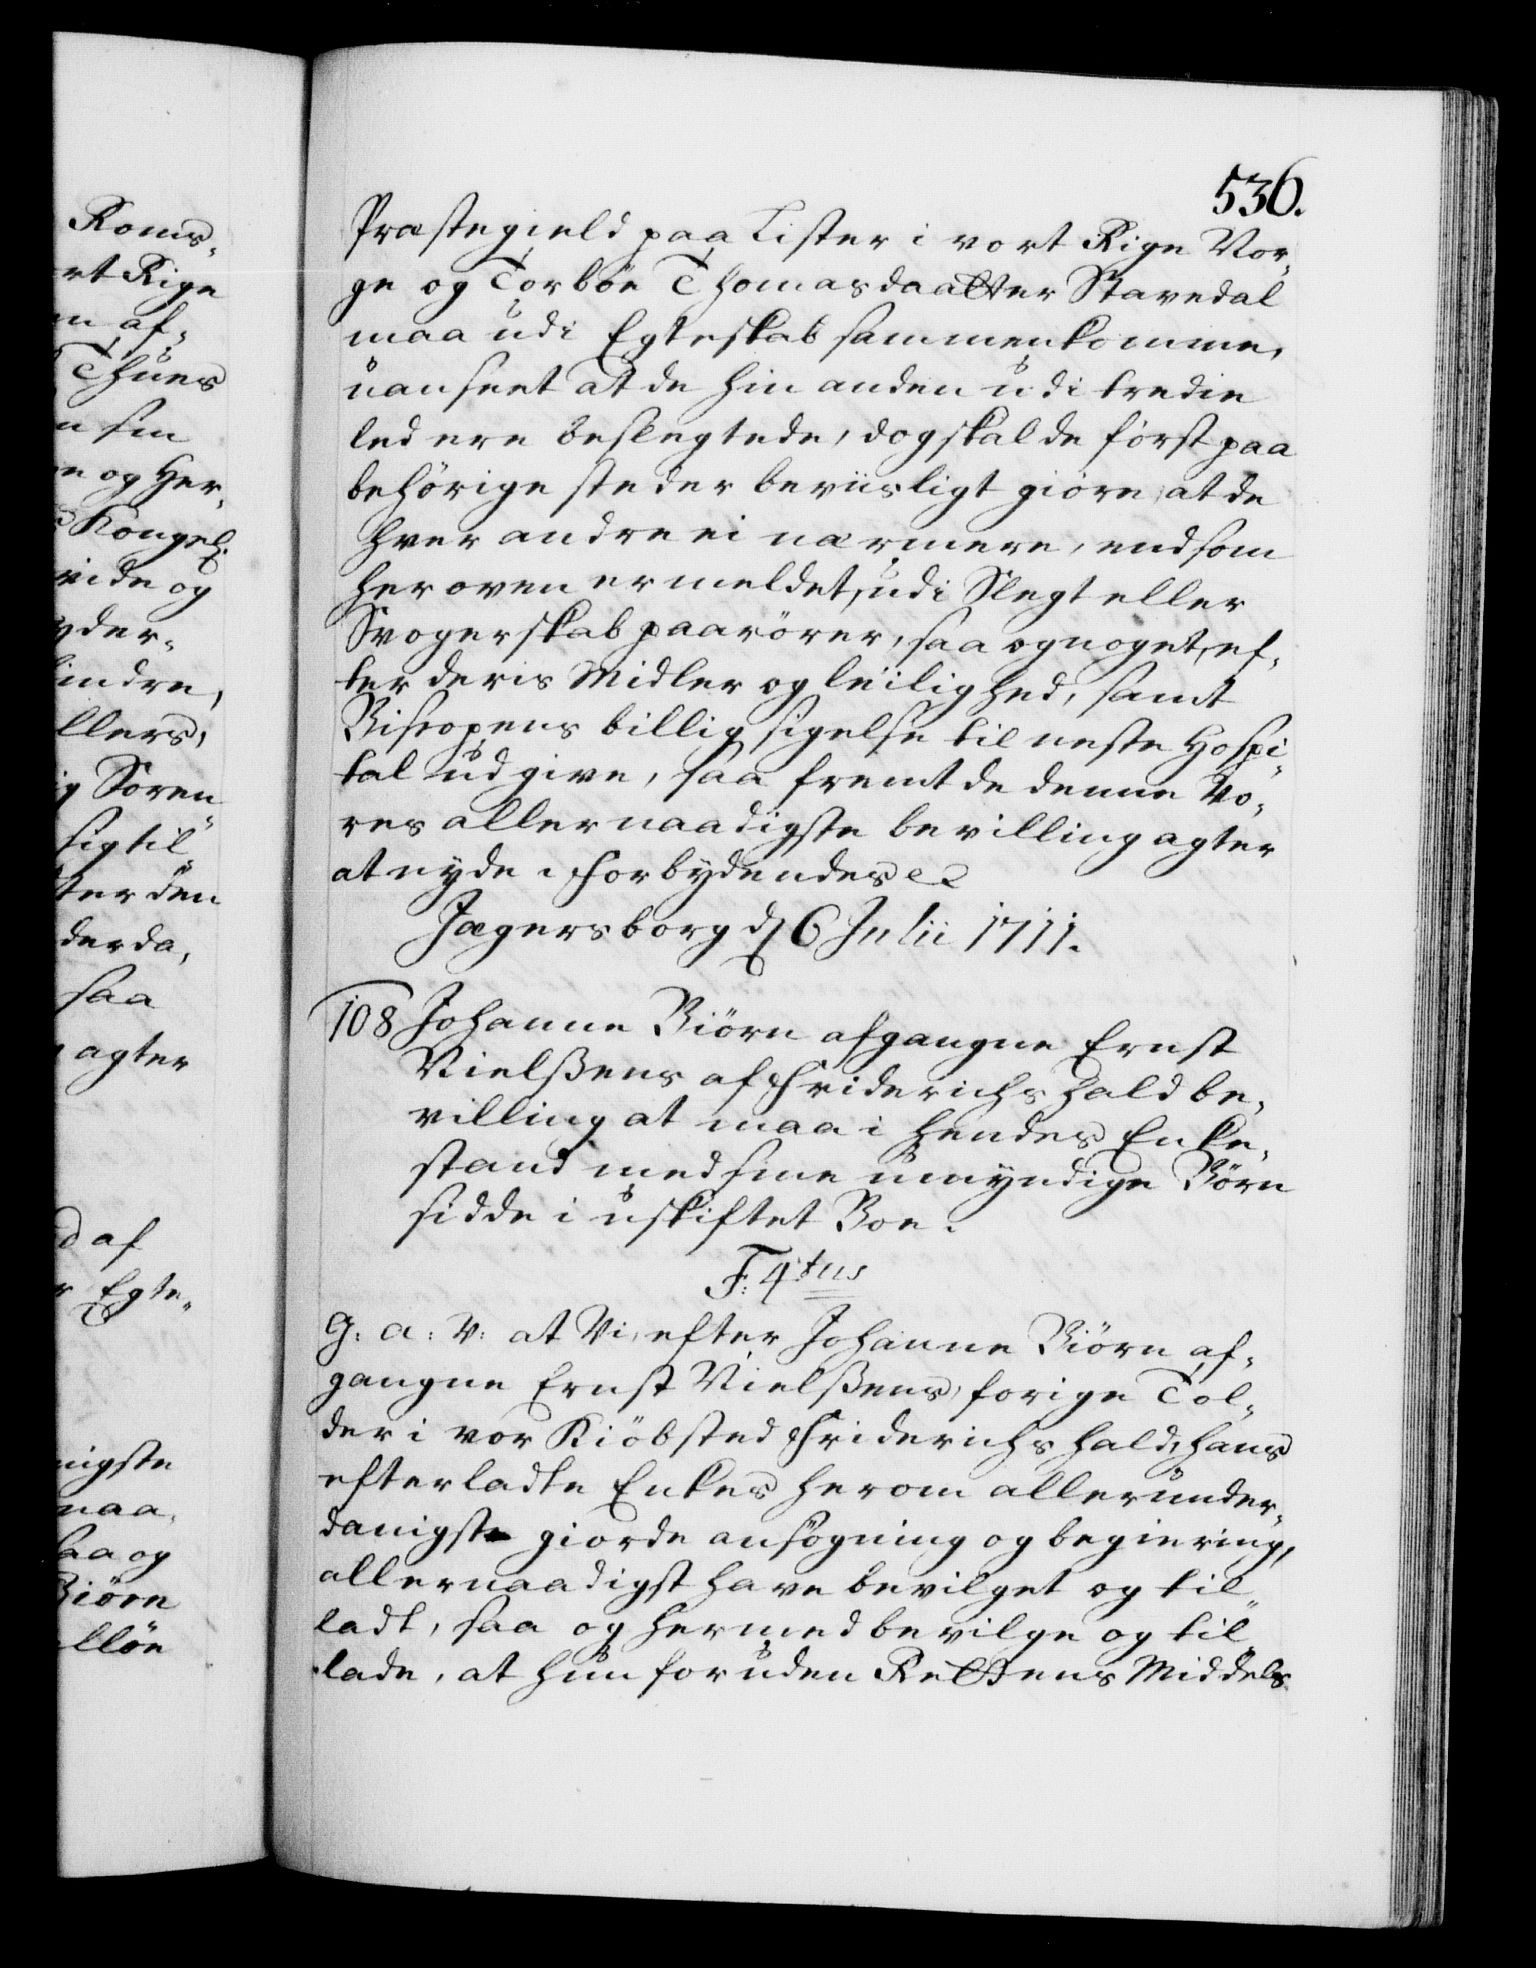 Roms-
rt Rige
n af-
Thues
n sin
ne og Her-
Kongel:
vide og
yder-
hindre,
llers,
ig Sören
sig til
ter den
der da,
saa
agter
d af
r Egte-
nigste
maa
saa og
Biörn
llön
536.
Præstegield paa Lister i vort Rige Nor-
ge og Torbön Thomasdaatter Stavedal
maa udi Egteskab sammenkomme,
uanseet at de hin anden udi tredie
led ere beslegtede, dog skal de först paa
behörige steder beviisligt giöre, at de
hver andre ei nærmere, end som
her oven ermeldet, udi Slegt eller
Svogerskab paarörer, saa og noget, ef-
ter deris Midler og leilighed, samt
Bispopens billig sigelse til neste Hospi-
tal udgive, saa fremt de denne Vo-
res allernaadigste bevilling agter
at nyde, Forbydendes
Jægersborg d 6 Julii 1711.
108 Johanne Biörn afgangne Ernst
Nielßens af Friderichshald be-
villing at maa i hendes Enke-
stand med sine umyndige Börn
sidde i uskiftet Boe.
F: 4tus
G: a: V: at Vi, efter Johanne Biörn af-
gangne Ernst Nielßens, forige Tol-
der i vor Kiöbsted Friderichshald, hans
efterladte Enkes herom allerunder-
danigste giorde ansögning og begiering,
allernaadigst have bevilget og til
ladt, saa og hermed bevilge og til
lade, at hun foruden Rettens Middels